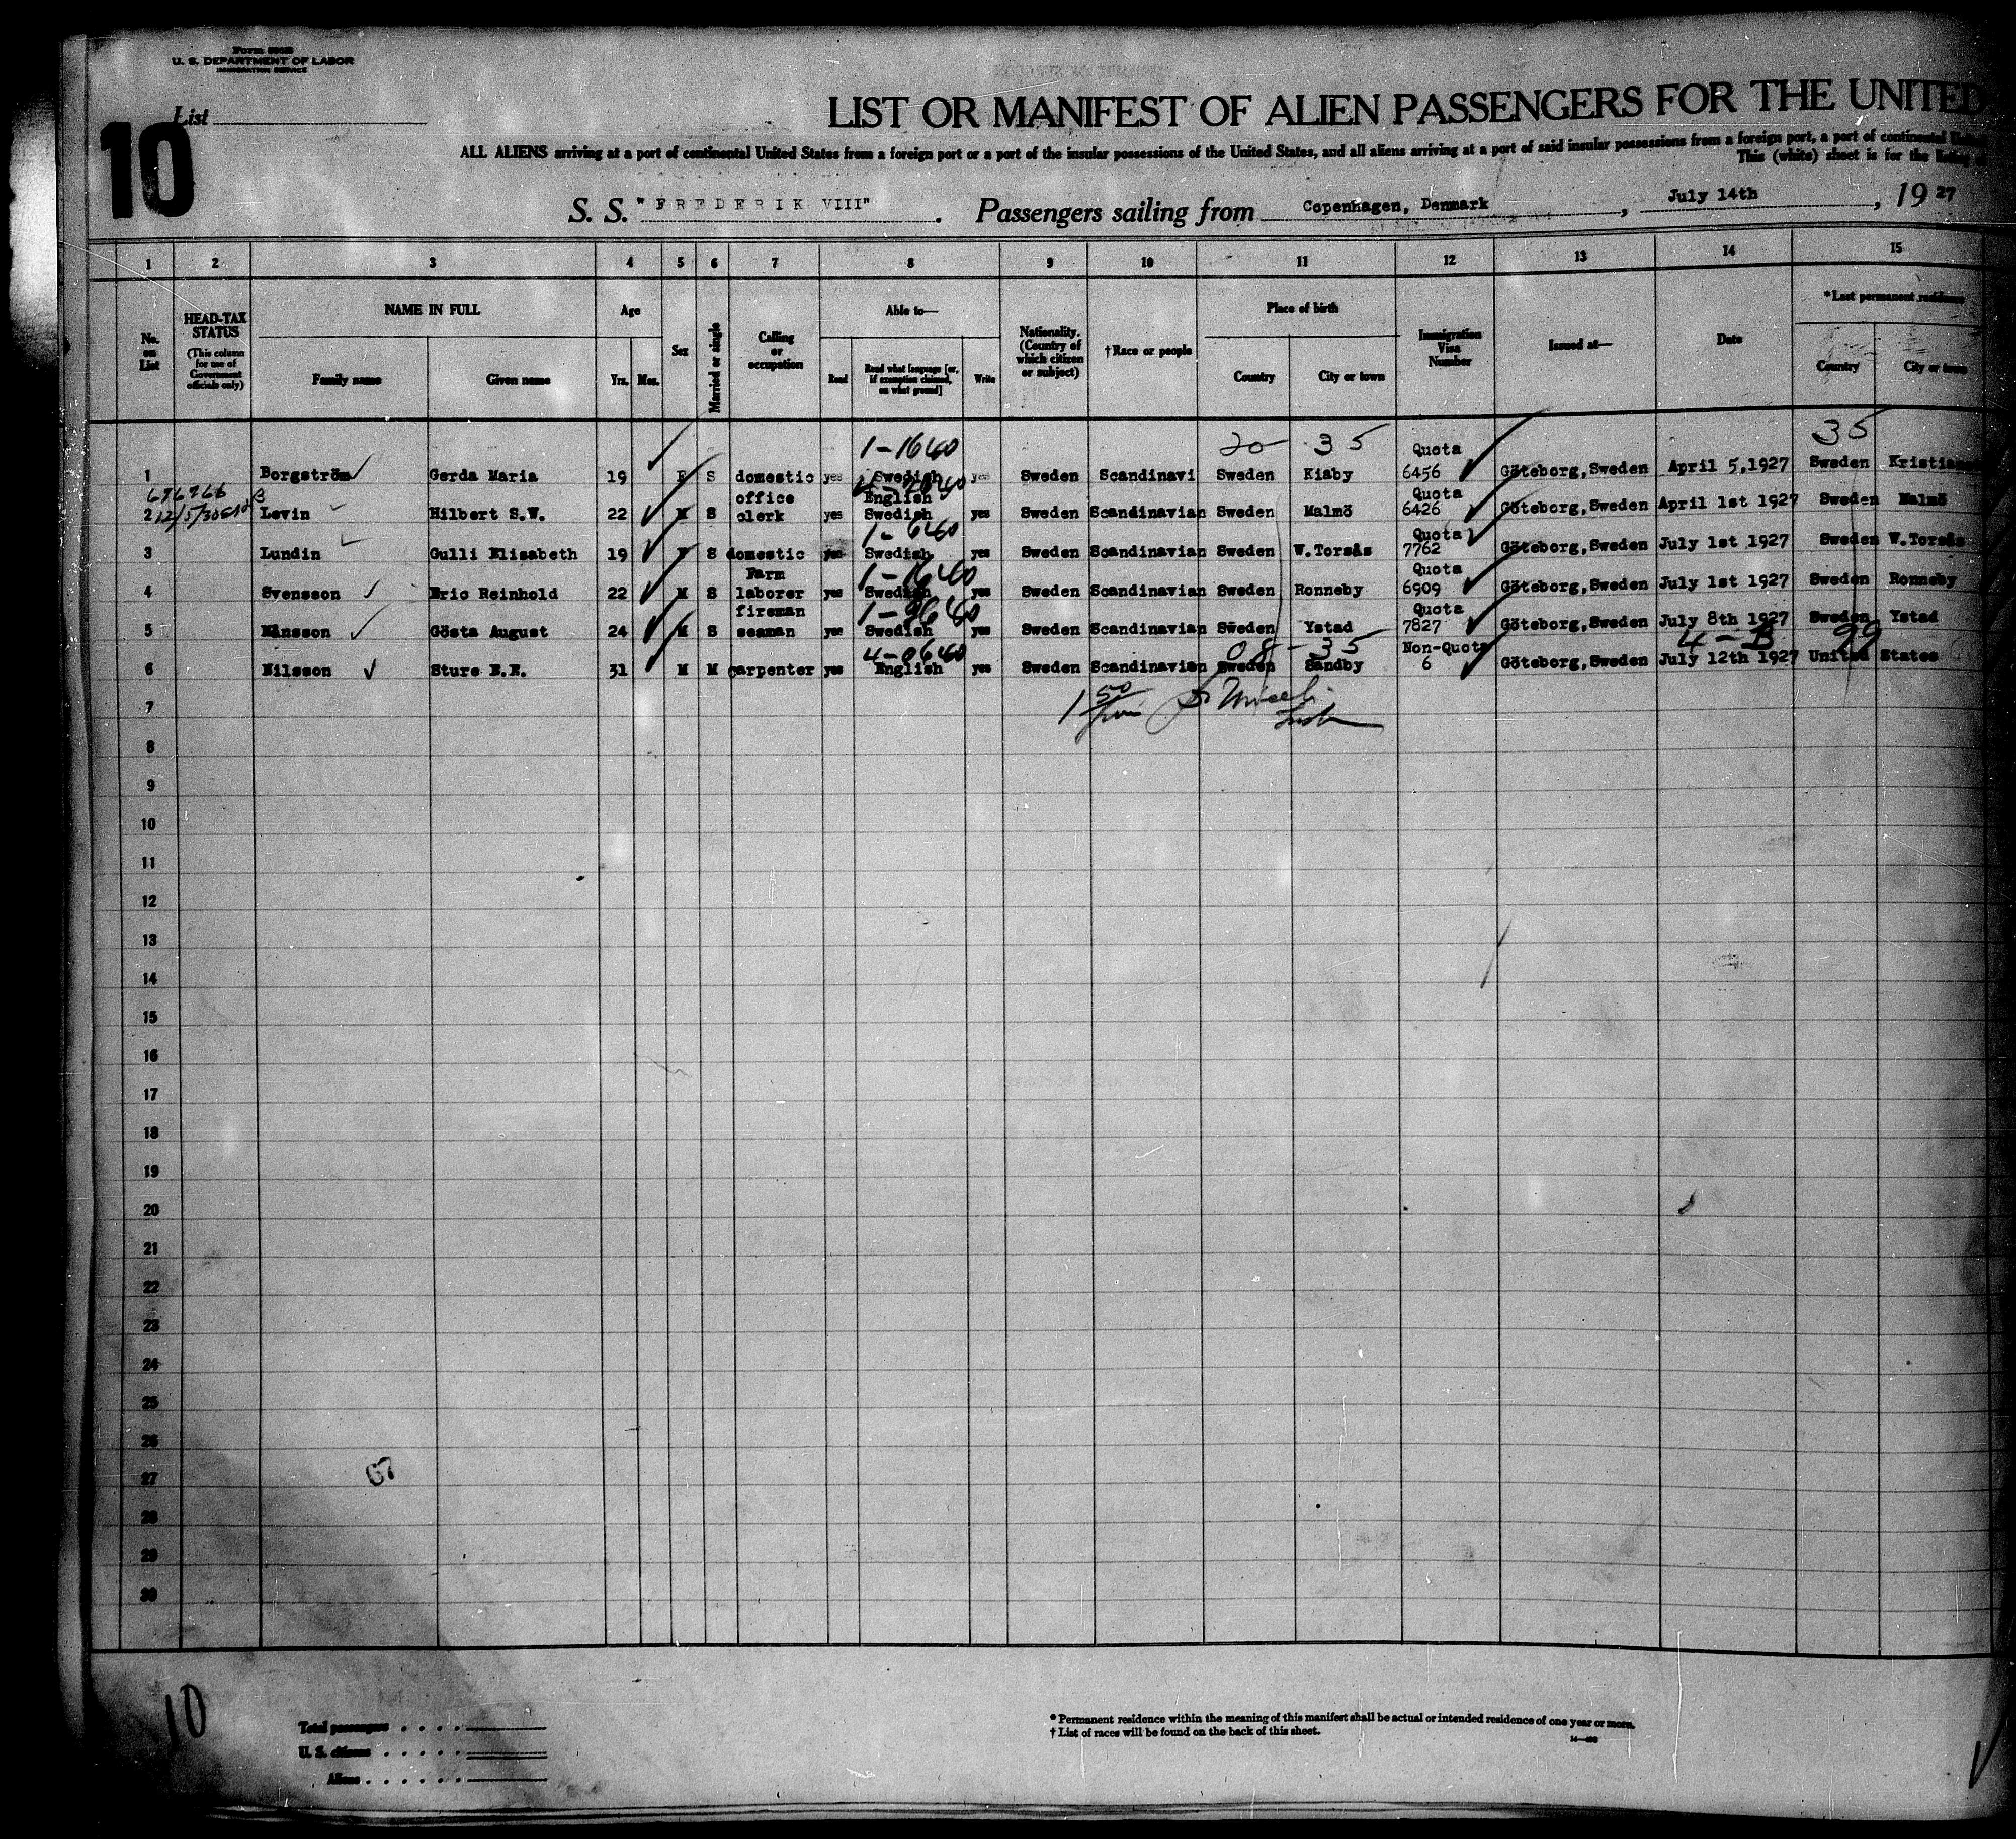 U. S. DEPARTMENT OF LABOR
IMMIGRATION SERVICE
List
10
LIST OR MANIFEST OF ALIEN PASSENGERS FOR THE UNITED
ALL ALIENS arriving at a port of continental United States from a foreign port or a port of the insular possessions of the United States, and all aliens arriving at a port of said insular possessions from a foreign port, a port of continental
This (white) sheet is for the listing
S. S. "FREDERIK VIII". Passengers sailing from Copenhagen, Denmark, July 14th, 1927
1 2 3 4 5 6 7 8 9 10 11 12 13 14 15
No. on List
HEAD-TAX STATUS (This column for use of Government officials only)
NAME IN FULL
Family name Given name
Age
Yrs. Mos.
Sex
Married or single
Calling or occupation
Able to—
Read Read what language [or, if exemption claimed, on what ground] Write
Nationality. (Country of which citizen or subject)
†Race or people
Place of birth
Country City or town
Immigration Visa Number
Issued at—
Date
*Last permanent residence
Country City or town
1-1640 20 35 35
1 Borgström Gerda Maria 19 F S domestic yes Swedish yes Sweden Scandinavi Sweden Kiaby Quota 6456 Göteborg, Sweden April 5, 1927 Sweden
2 Levin Hilbert S.W. 22 M S office clerk yes English Swedish yes Sweden Scandinavian Sweden Malmö Quota 6426 Göteborg, Sweden April 1st 1927 Sweden Malmö
1-6460
3 Lundin Gulli Elisabeth 19 F S domestic yes Swedish yes Sweden Scandinavian Sweden W.Torsås Quota 7762 Göteborg, Sweden July 1st 1927 Sweden W.Torsås
1-1640
4 Svensson Eric Reinhold 22 M S Farm laborer yes Swedish yes Sweden Scandinavian Sweden Ronneby Quota 6909 Göteborg, Sweden July 1st 1927 Sweden Ronneby
5 Månsson Gösta August 24 M S fireman seaman yes Swedish yes Sweden Scandinavian Sweden Ystad Quota 7827 Göteborg, Sweden July 8th 1927 Sweden Ystad
4-0640 08-35 4-B 99
6 Nilsson Sture E.E. 31 M M carpenter yes English yes Sweden Scandinavian Sweden Sandby Non-Quota 6 Göteborg, Sweden July 12th 1927 United States
7
8
9
10
11
12
13
14
15
16
17
18
19
20
21
22
23
24
25
26
27
28
29
30
10
Total passengers
U. S. citizens
Aliens
* Permanent residence within the meaning of this manifest shall be actual or intended residence of one year or more.
† List of races will be found on the back of this sheet.